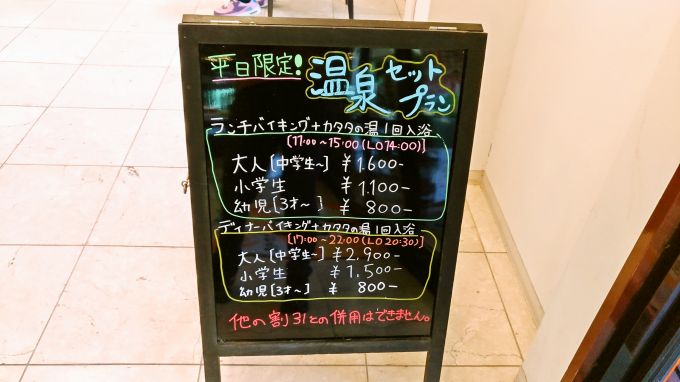 平日限定!
温泉セットプラン
ランチバイキング+カタタの湯1回入浴
[11:00〜15:00(LO14:00)]
大人[中学生〜] ¥1.600-
小学生 ¥1.100-
幼児[3才〜] ¥800-
ディナーバイキング+カタタの湯1回入浴
[17:00〜22:00(LO20:30)]
大人[中学生〜] ¥2.900-
小学生 ¥1.500-
幼児[3才〜] ¥800-
他の割引との併用はできません。